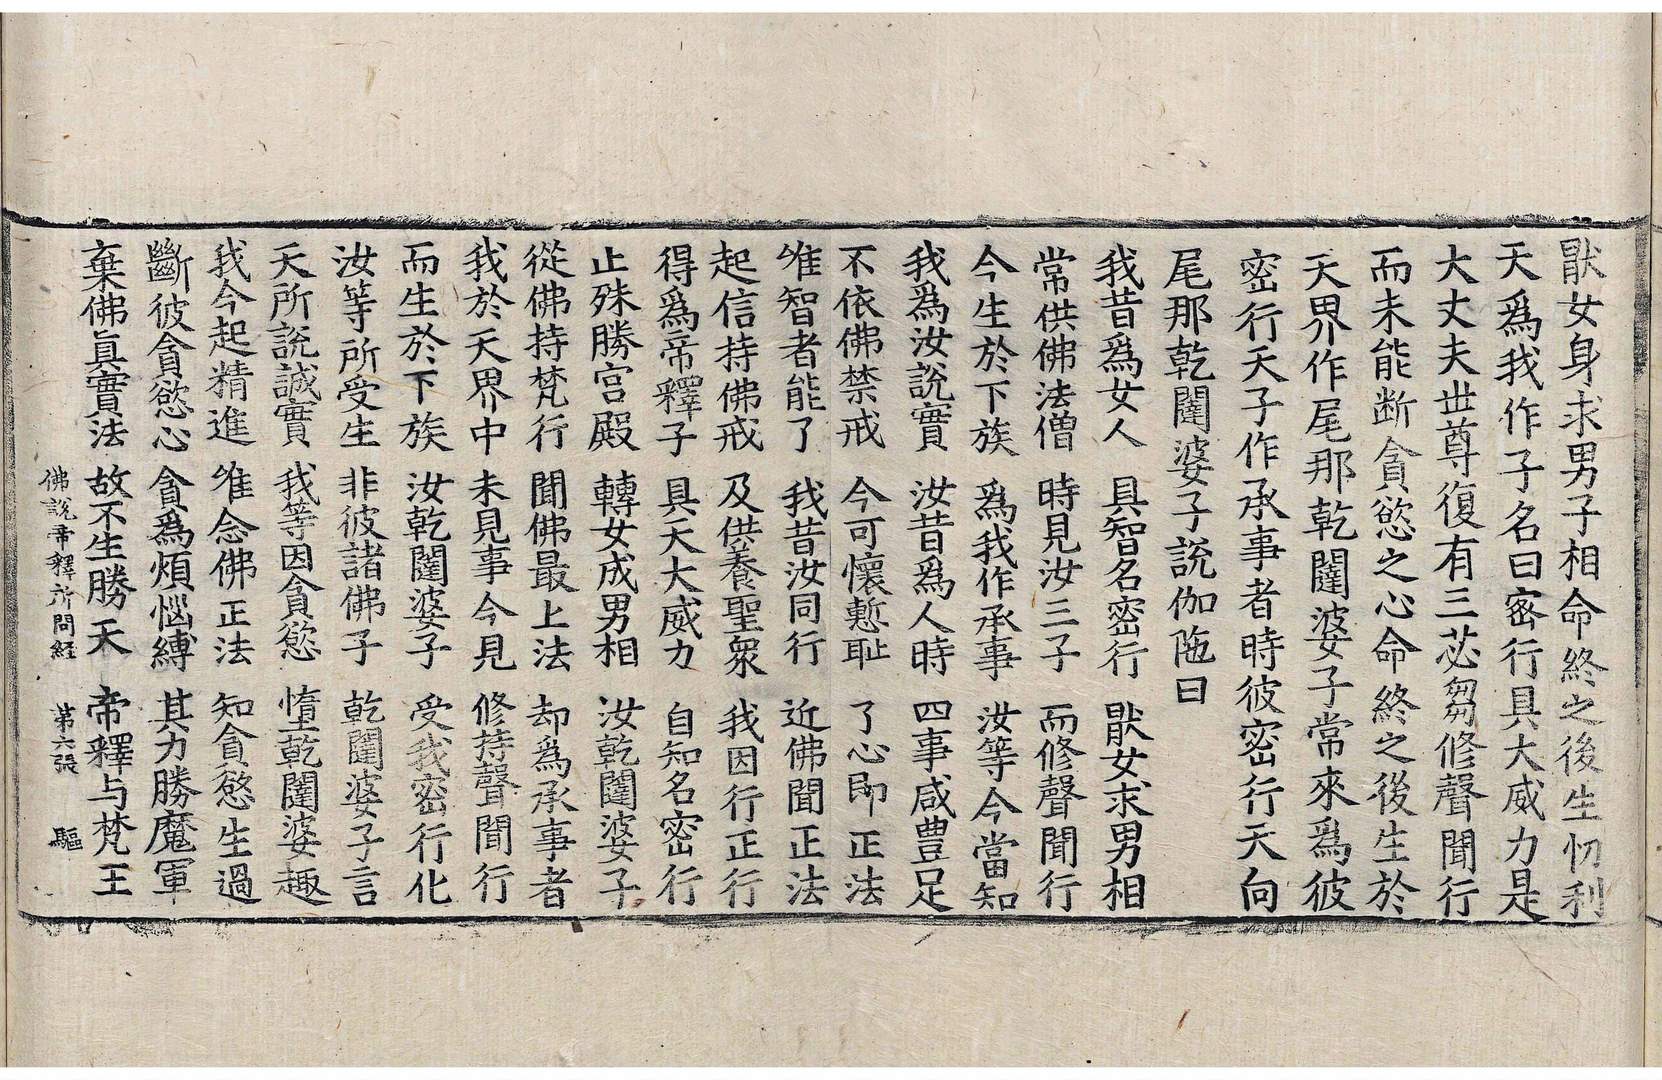 猒女身求男子相命終之後生忉利
天爲我作子名曰密行具大威力是
大丈夫世尊復有三苾芻修聲聞行
而未能断貪慾之心命終之後生於
天界作尾那乾闥婆子常來爲彼
密行天子作承事者時彼密行天向
尾那乾闥婆子說伽陁曰
我昔爲女人　具智名密行　猒女求男相
常供佛法僧　時見汝三子　而修聲聞行
今生於下族　爲我作承事　汝等今當知
我爲汝說實　汝昔爲人時　四事咸豊足
不依佛禁戒　今可懷慙耻　了心即正法
唯智者能了　我昔汝同行　近佛聞正法
起信持佛戒　及供養聖衆　我因行正行
得爲帝釋子　具天大威力　自知名密行
止殊勝宫殿　轉女成男相　汝乾闥婆子
從佛持梵行　聞佛最上法　却爲承事者
我於天界中　未見事今見　修持聲聞行
而生於下族　汝乾闥婆子　受我密行化
汝等所受生　非彼諸佛子　乾闥婆子言
天所說誠實　我等因貪慾　墮乾闥婆趣
我今起精進　唯念佛正法　知貪慾生過
斷彼貪慾心　貪爲煩惱縛　其力勝魔軍
棄佛眞實法　故不生勝天　帝釋与梵王
佛說帝釋所問経　第六張　驅